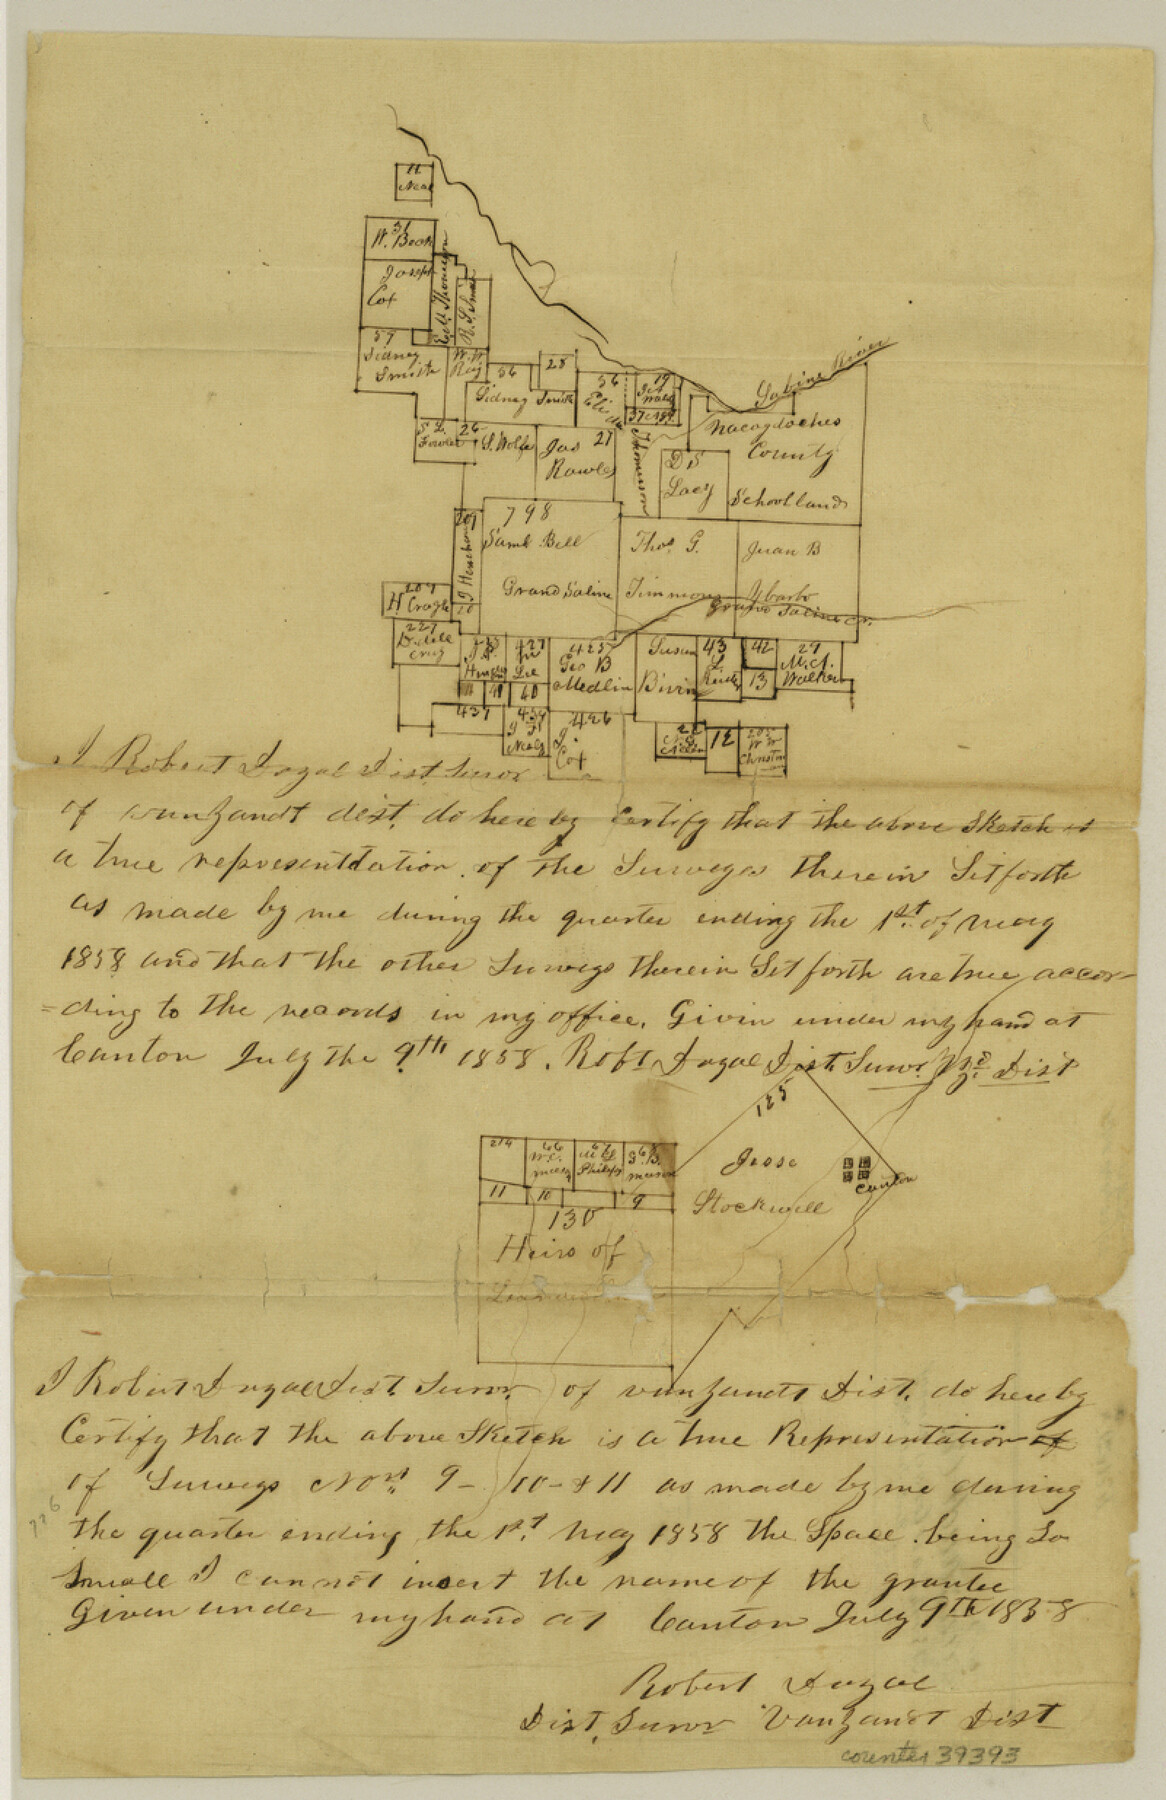 11
Neal
51
W. Beah
Joseph
Cox
Thomison
R. S. Smith
57
Sidney
Smith
W. W.
King
56
28
Sidney Smith
56
19
Thomison
37
Sabine River
Nacogdoches
County
School lands
S. L.
Fowler
26
S. Wolfe
Jas 27
Rawls
D S
Lacy
798
Saml Bell
Grand Saline
Thos. G.
Timmons
Juan B
Ybarbo
Grand Saline cr.
10
207
H Cragle
227
Craig
427
Lee
425
Geo B
Medlin
Susan
Bivin
43
42
13
29
M. A.
Walker
40
437
Neal
426
J.
Cox
12
W W
Christm
I Robert Dugal Dist. Survr
of vanzandt dist. do hereby certify that the above Sketch is
a true representdation of the Surveys therein Setforth
as made by me during the quarter ending the 1st. of may
1858 and that the other Surveys therein Setforth are true accor-
=ding to the records in my office. Givin under my hand at
Canton July the 9th 1858. Robt Dugal Dist. Survr. Vzd. Dist
125
Jesse
Stockwell
Canton
214
66
W. C.
67
Philips
68
11
10
9
130
Heirs of
I Robert Dugal Dist. Survr. of vanzandt Dist. do hereby
Certify that the above Sketch is a true Representation of
of Surveys Nos. 9 - 10 - & 11 as made by me during
the quarter ending the 1st. may 1858 the Space being So
Small I cannot insert the name of the grantee
Given under my hand at Canton July 9th 1858
Robert Dugal
Dist. Survr Vanzandt Dist
counter 39393